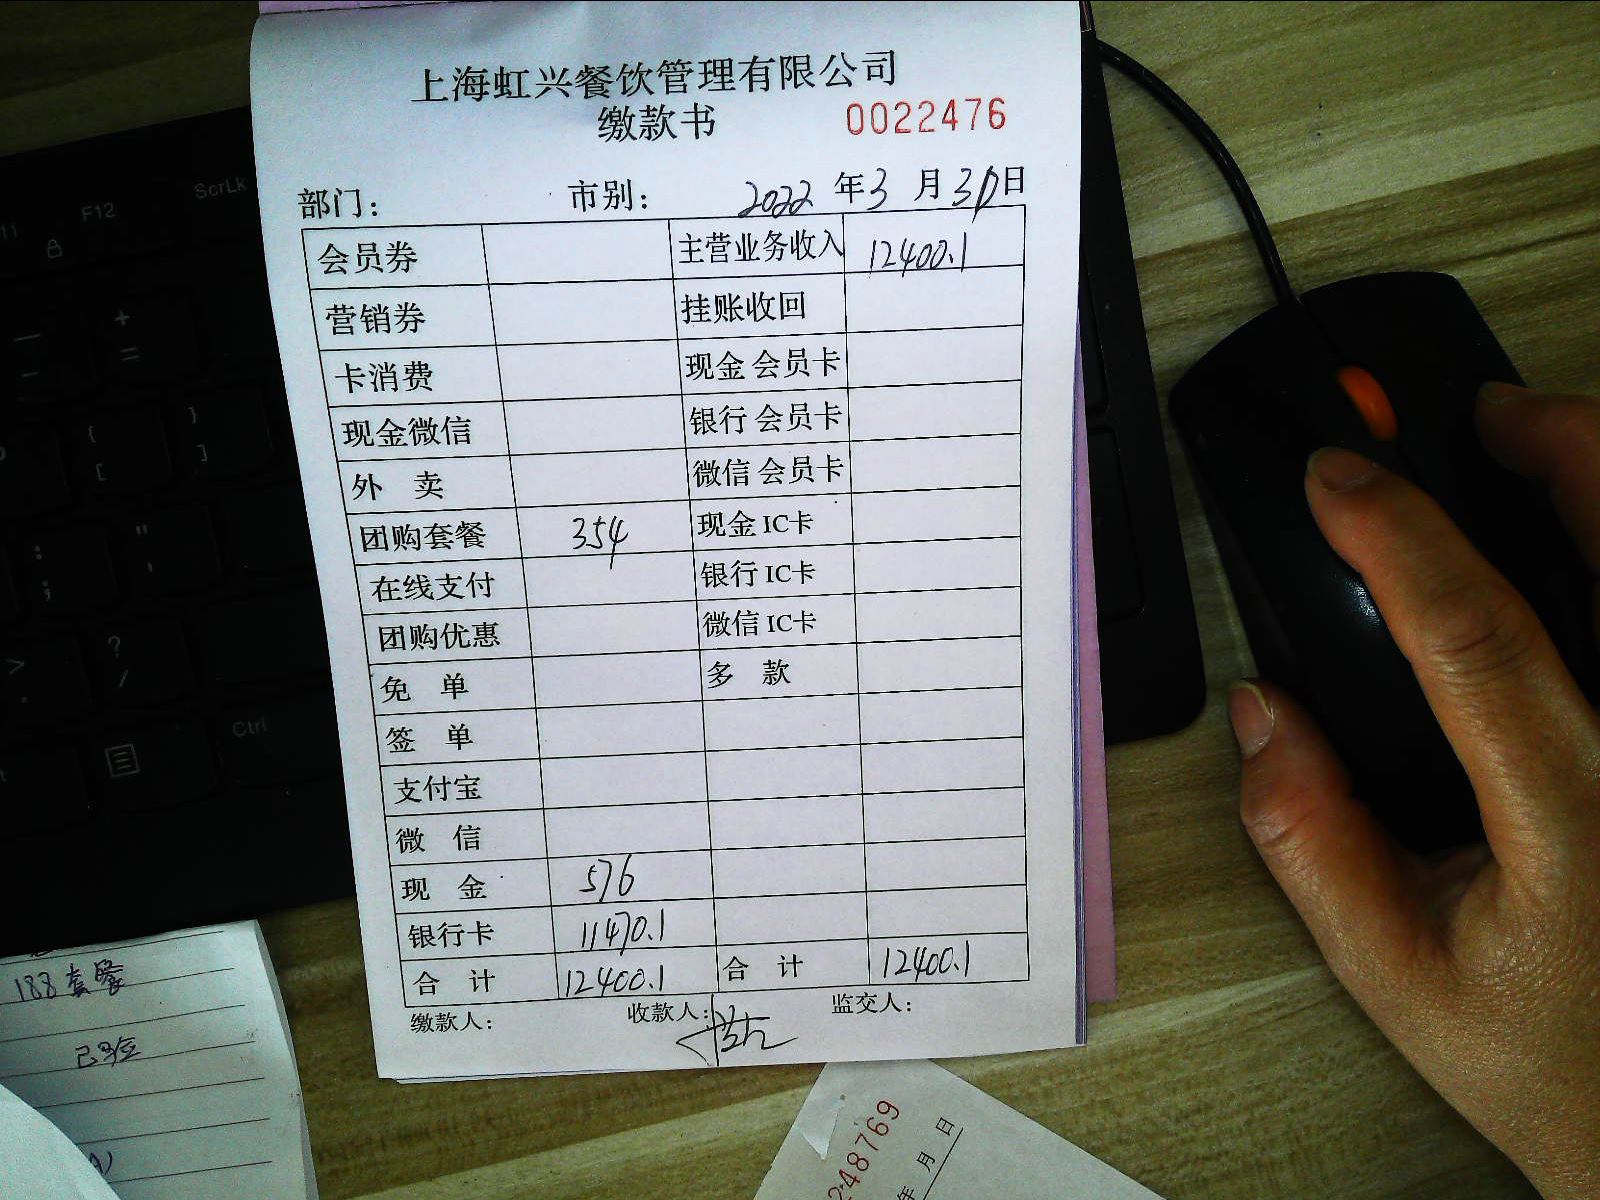 上海虹兴餐饮管理有限公司
缴款书 0022476
部门: 市别: 2022 年 3 月 30 日
会员券 主营业务收入 12400.1
营销券 挂账收回
卡消费 现金 会员卡
现金微信 银行 会员卡
外 卖 微信 会员卡
团购套餐 354 现金 IC卡
在线支付 银行 IC卡
团购优惠 微信 IC卡
免 单 多 款
签 单
支付宝
微 信
现 金 576
银行卡 11470.1
合 计 12400.1 合 计 12400.1
缴款人: 收款人: 监交人:
188套餐
已验
248769
年 月 日
ScrLk
F12
Ctrl